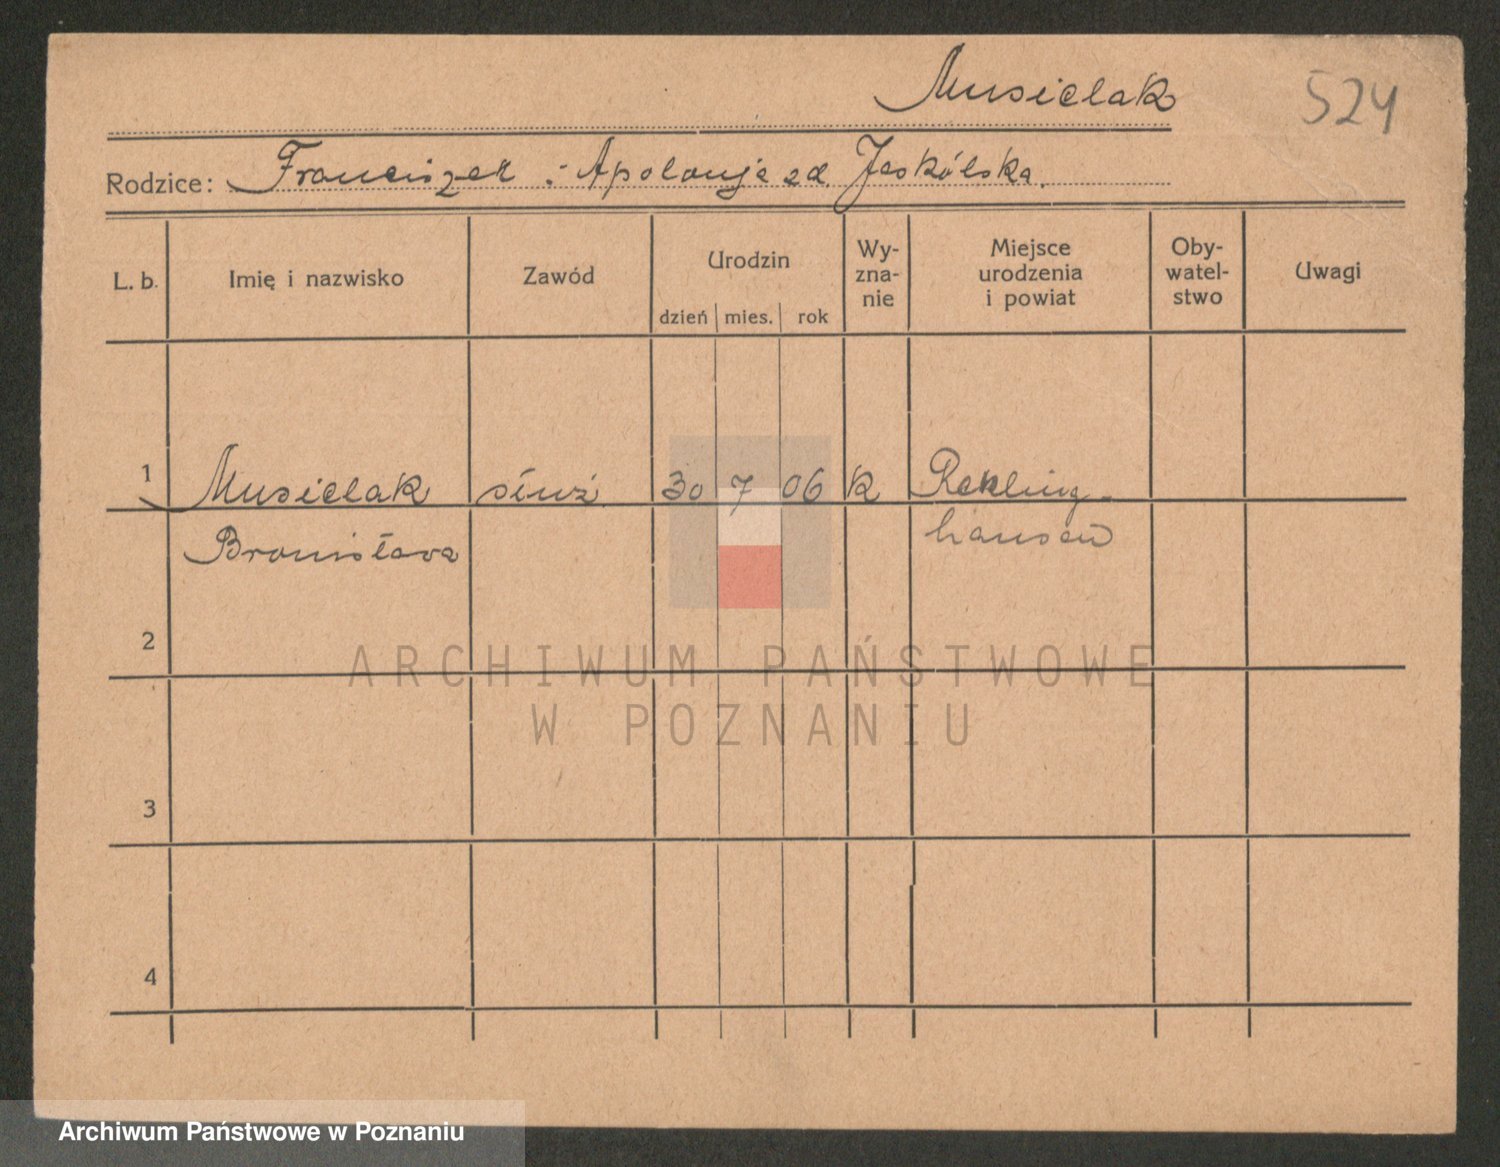 Musielak
524
Rodzice: Franciszek i Apolonja zd. Jaskólska.
L. b. Imię i nazwisko Zawód Urodzin dzień mies. rok Wy-zna-nie Miejsce urodzenia i powiat Oby-watel-stwo Uwagi
1 Musielak służ. 30 7 06 K Rekling-
Bronisława hausen
2
3
4
ARCHIWUM PAŃSTWOWE
W POZNANIU
Archiwum Państwowe w Poznaniu